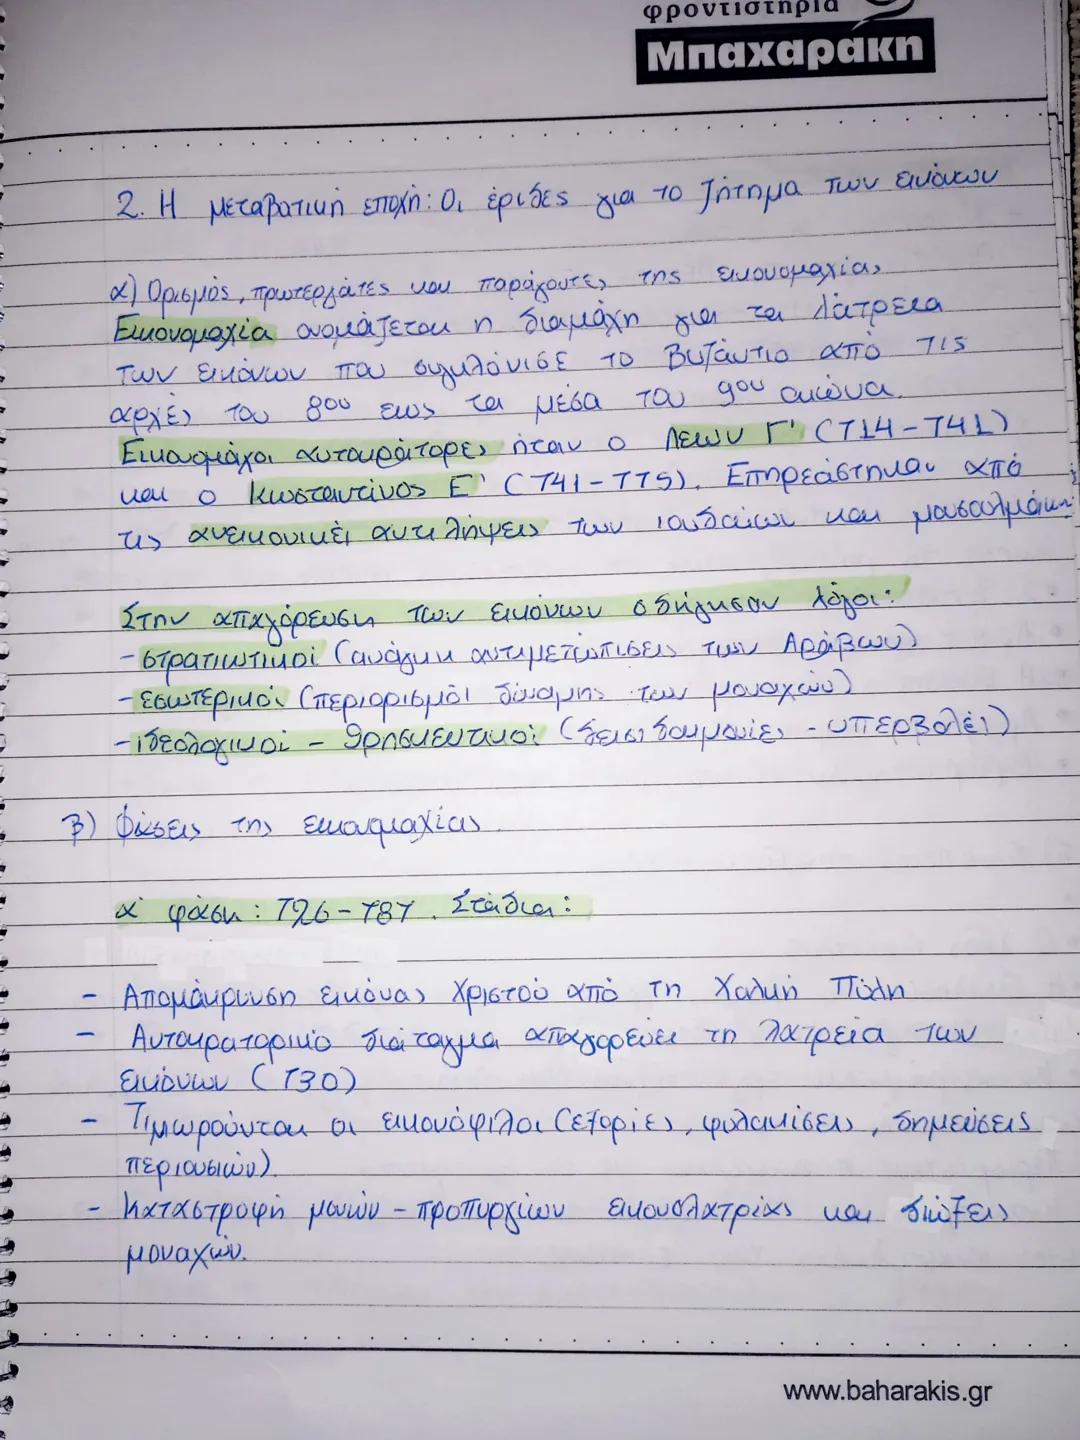 φροντιστήρια
Μπαχαράκη
2. Η μεταβατική εποχή: Οι έριδες για το ζήτημα των εικόνων
α) Ορισμός, πρωτεργάτες και παράγοντες της εικονομαχίας
Εικονομαχία ονομάζεται η διαμάχη για τα λάτρεια
των εικόνων που συγκλόνισε το Βυζάντιο από τις
αρχές του 8ου εως τα μέσα του 9ου αιώνα.
Εικονομάχοι αυτοκράτορες ήταν ο Λέων Γ' (714-741)
και ο Κωσταντίνος Ε' (741-775). Επηρεάστηκαν από
τις ανεικονικές αντιλήψεις των ιουδαίων και μουσουλμάνων
Στην απαγόρευση των εικόνων οδήγησαν λόγοι:
- στρατιωτικοί (ανάγκη αντιμετώπισεις των Αράβων)
- εσωτερικοί (περιορισμοί δύναμης των μοναχών)
- ιδεολογικοί - θρησκευτικοί (δεισιδαιμονίες - υπερβολές)
β) Φάσεις της εικονομαχίας
α' φάση: 726-787. Στάδια:
- Απομάκρυνση εικόνας Χριστού από τη Χαλκή Πύλη
- Αυτοκρατορικό διάταγμα απαγορεύει τη λατρεία των
εικόνων (730)
- Τιμωρούνται οι εικονόφιλοι (εξορίες, φυλακίσεις, δημεύσεις
περιουσιών)
- Καταστροφή μονών - προπυργίων εικονολατρίας και διώξεις
μοναχών.
www.baharakis.gr